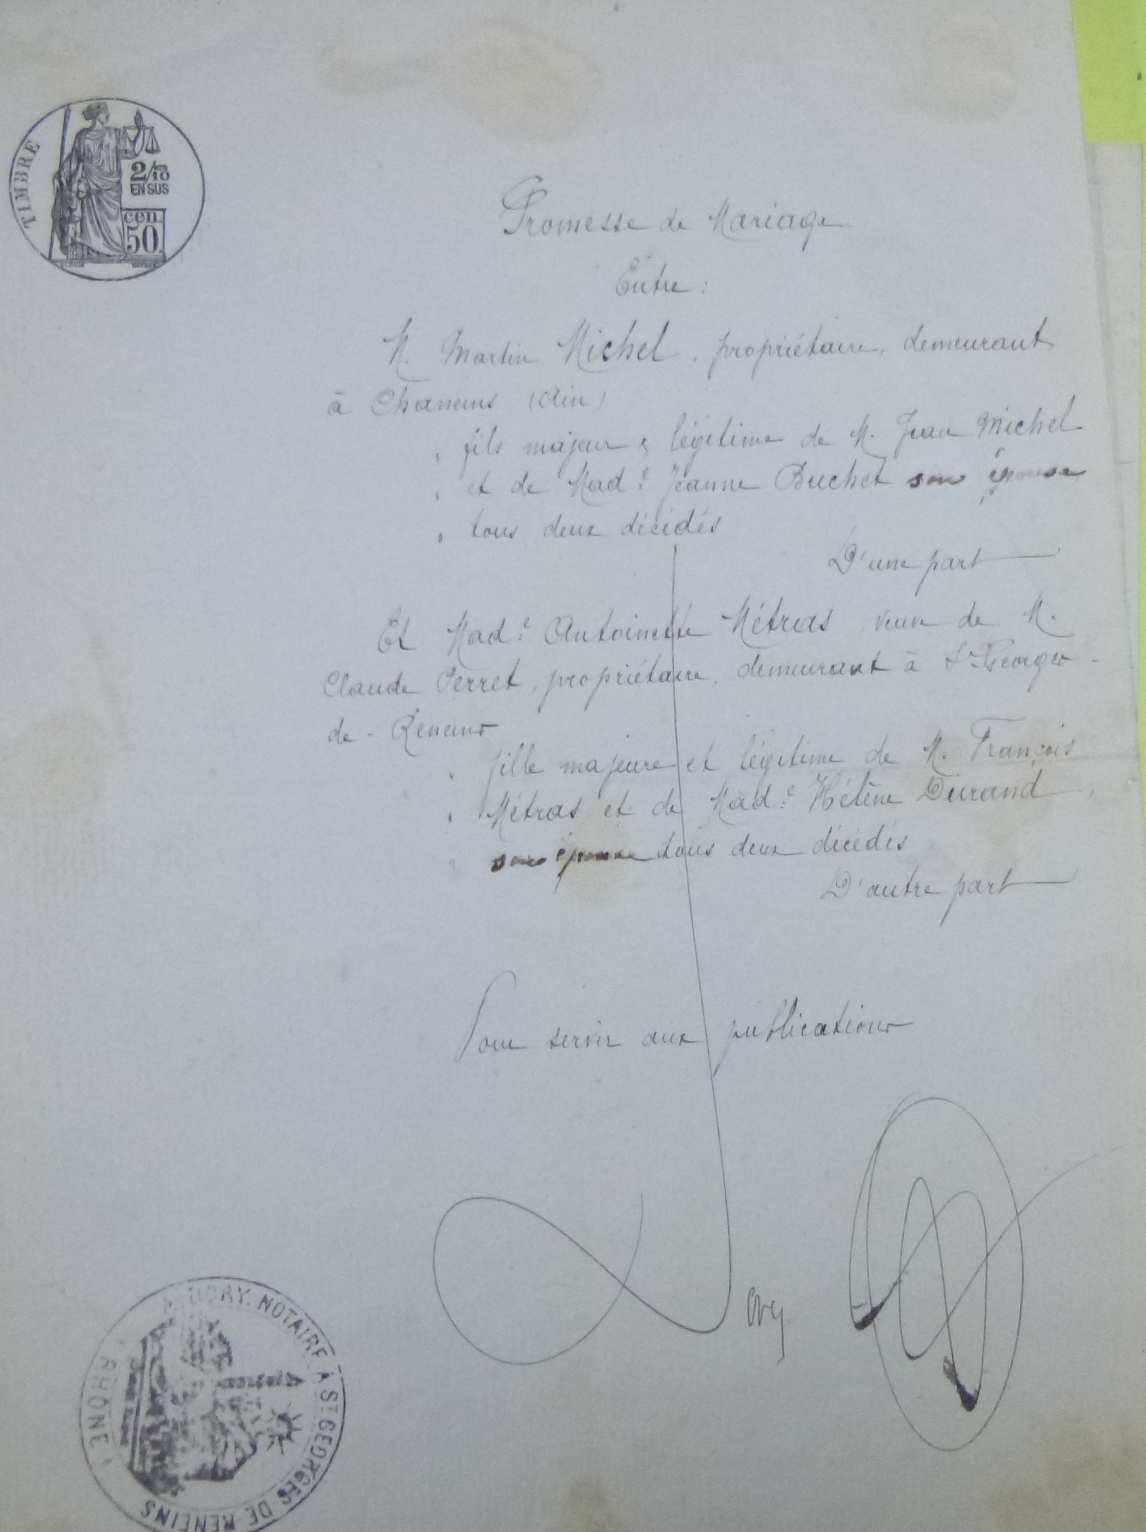 TIMBRE
2/10
EN SUS
cen.
50.
Promesse de Mariage
Entre :
M. Martin Michel, propriétaire, demeurant
à Chaneins (Ain)
fils majeur & légitime de M. Jean Michel
et de Made Jeanne Buchet son épouse
tous deux décédés
D'une part
Et Made Antoinette Métras veuve de M.
Claude Perret, propriétaire, demeurant à St Georges-
de-Reneins
fille majeure et légitime de M. François
Métras et de Made Hélène Durand,
son épouse tous deux décédés
D'autre part
Pour servir aux publications
DORY, NOTAIRE À ST GEORGES DE RENEINS
RHONE